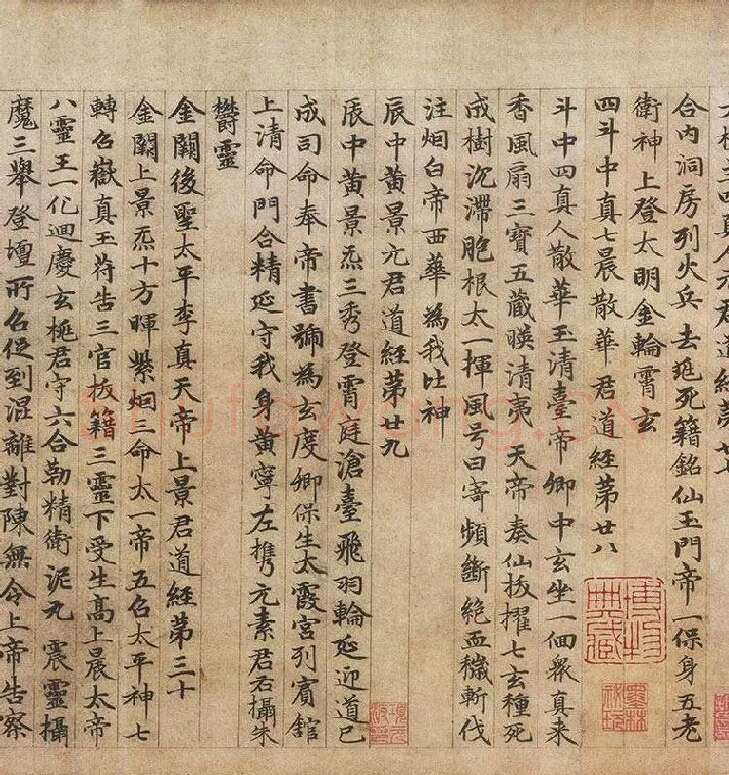 真人元君道經第廿七
合內洞房列火兵去死籍銘仙玉門帝一保身五老
衛神上登太明金輪霄玄
四斗中真七晨散華君道經第廿八
斗中四真人散華玉清臺帝卿中玄坐一個衆真来
香風扇三寶五藏暎清夷天帝奏仙扳擢七玄種死
成樹沉滯胞根太一揮風号曰寄頻斷絕血穢斬伐
注烟白帝西華為我比神
辰中黄景元君道經第廿九
辰中黄景炁三秀登霄庭滄臺飛羽輪延迎道已
成司命奉帝書號為玄度卿保生太霞宮列賓舘
上清命門合精延守我身黄寧左携元素君右攝朱
欝靈
金闕後聖太平李真天帝上景君道經第三十
金闕上景炁十方暉紫烟三命太一帝五名太平神七
轉名嶽真玉符告三官拔籍三靈下受生高上晨太帝
八靈王一化迴慶玄桃君守六合勒精衛泥丸震靈攝
魔三舉登壇所名促到混離對陳無令上帝告察
博物典藏